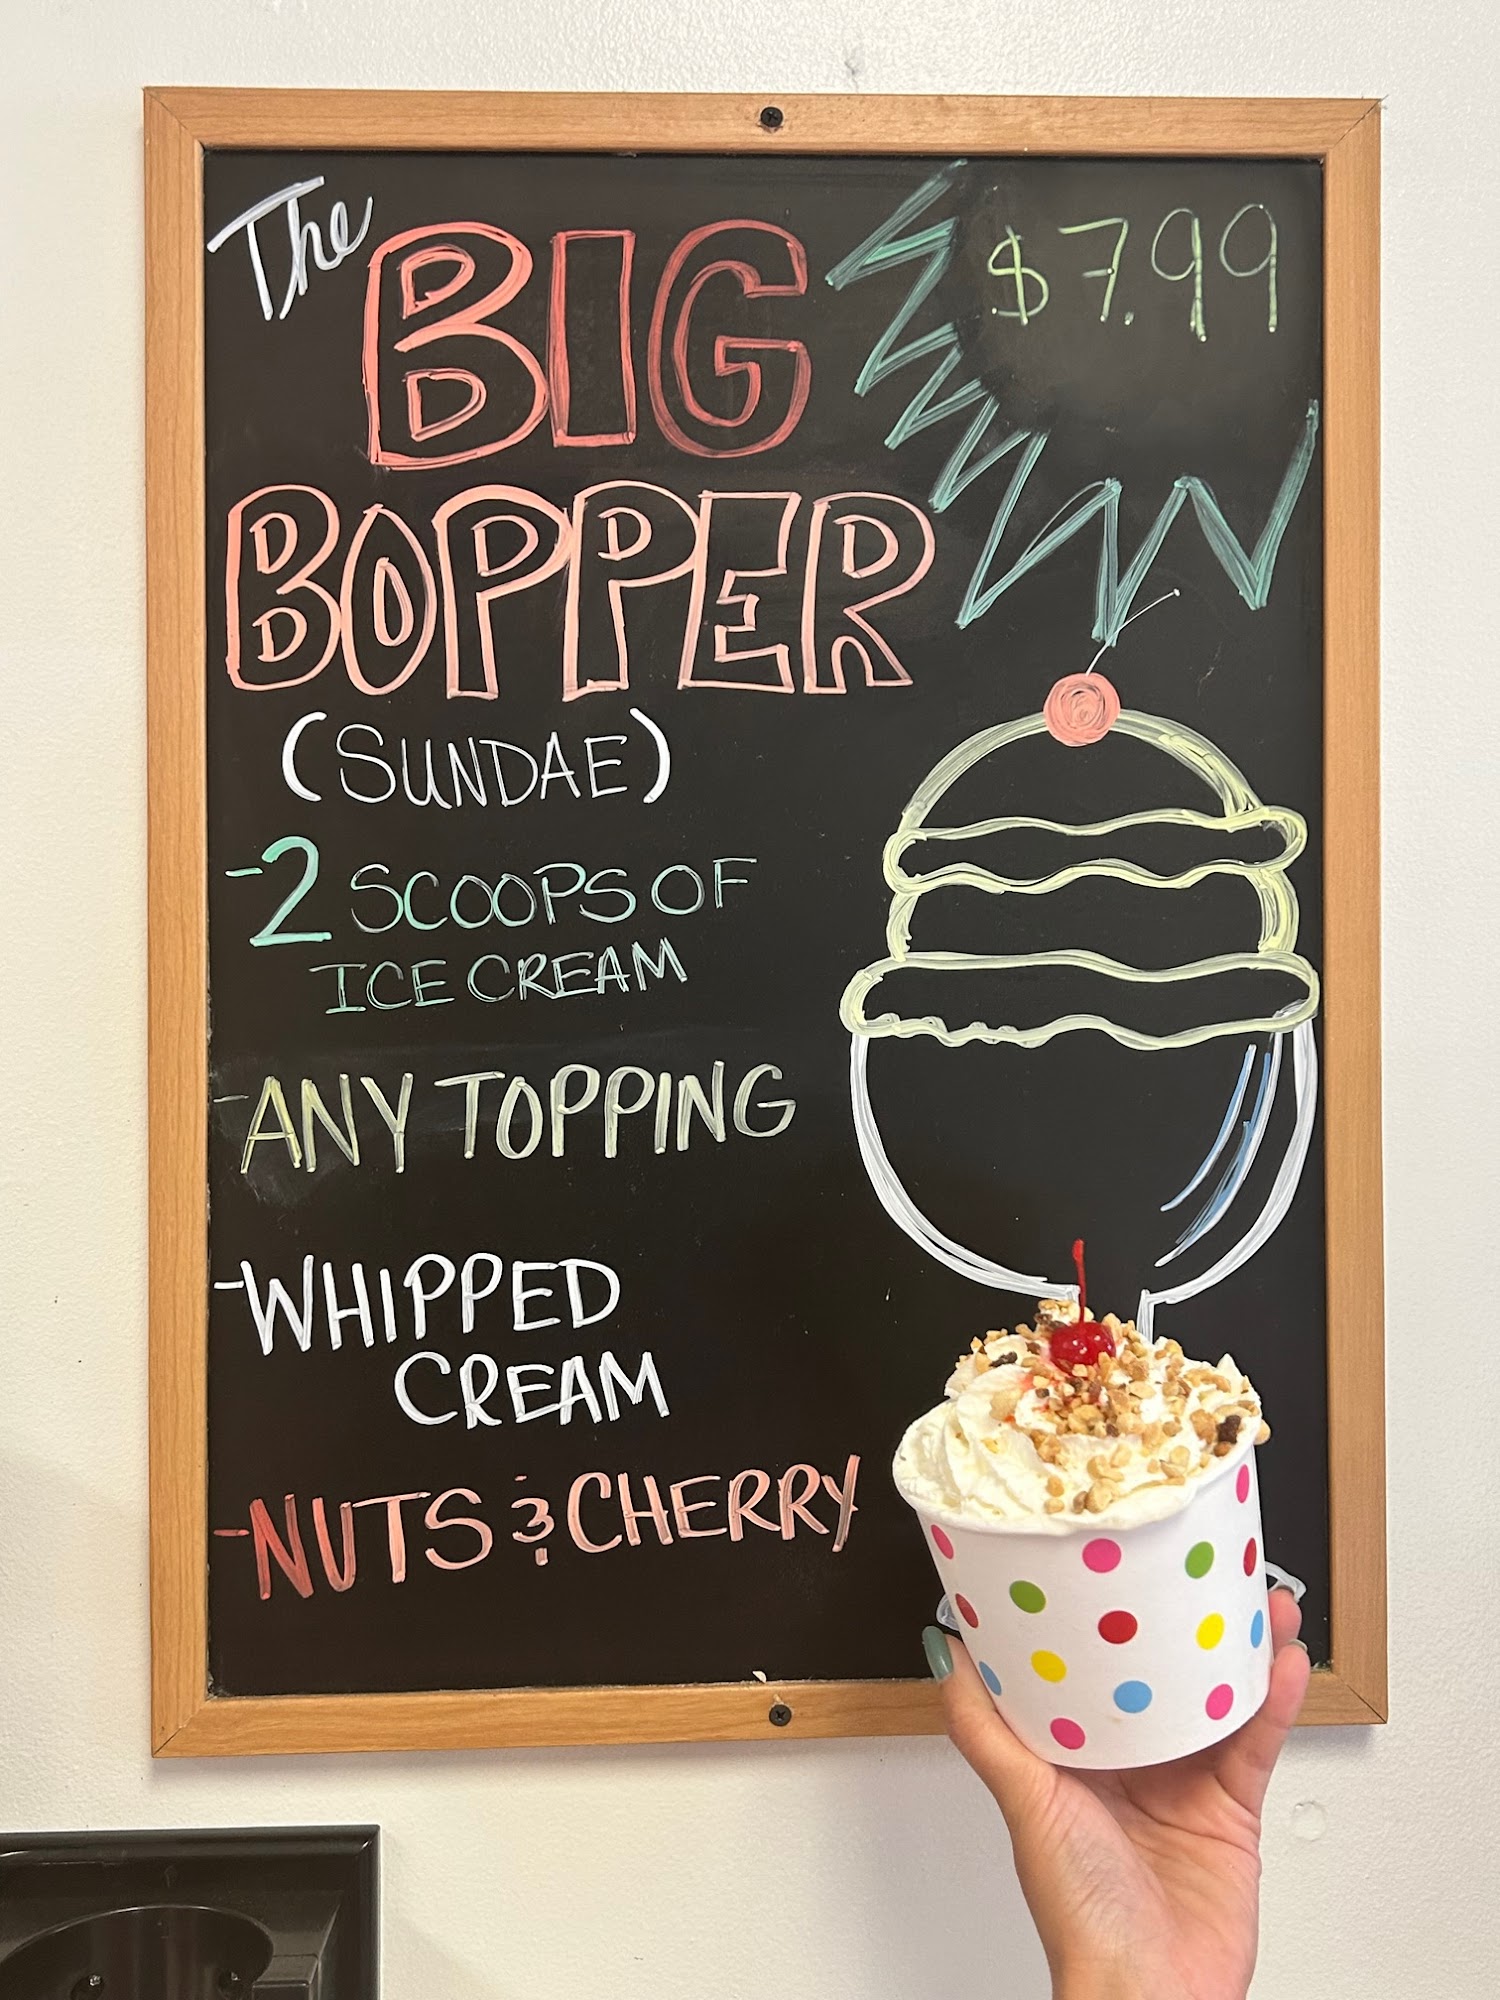 The
$7.99
BIG
BOPPER
(SUNDAE)
-2 SCOOPS OF
ICE CREAM
-ANY TOPPING
-WHIPPED
CREAM
-NUTS & CHERRY